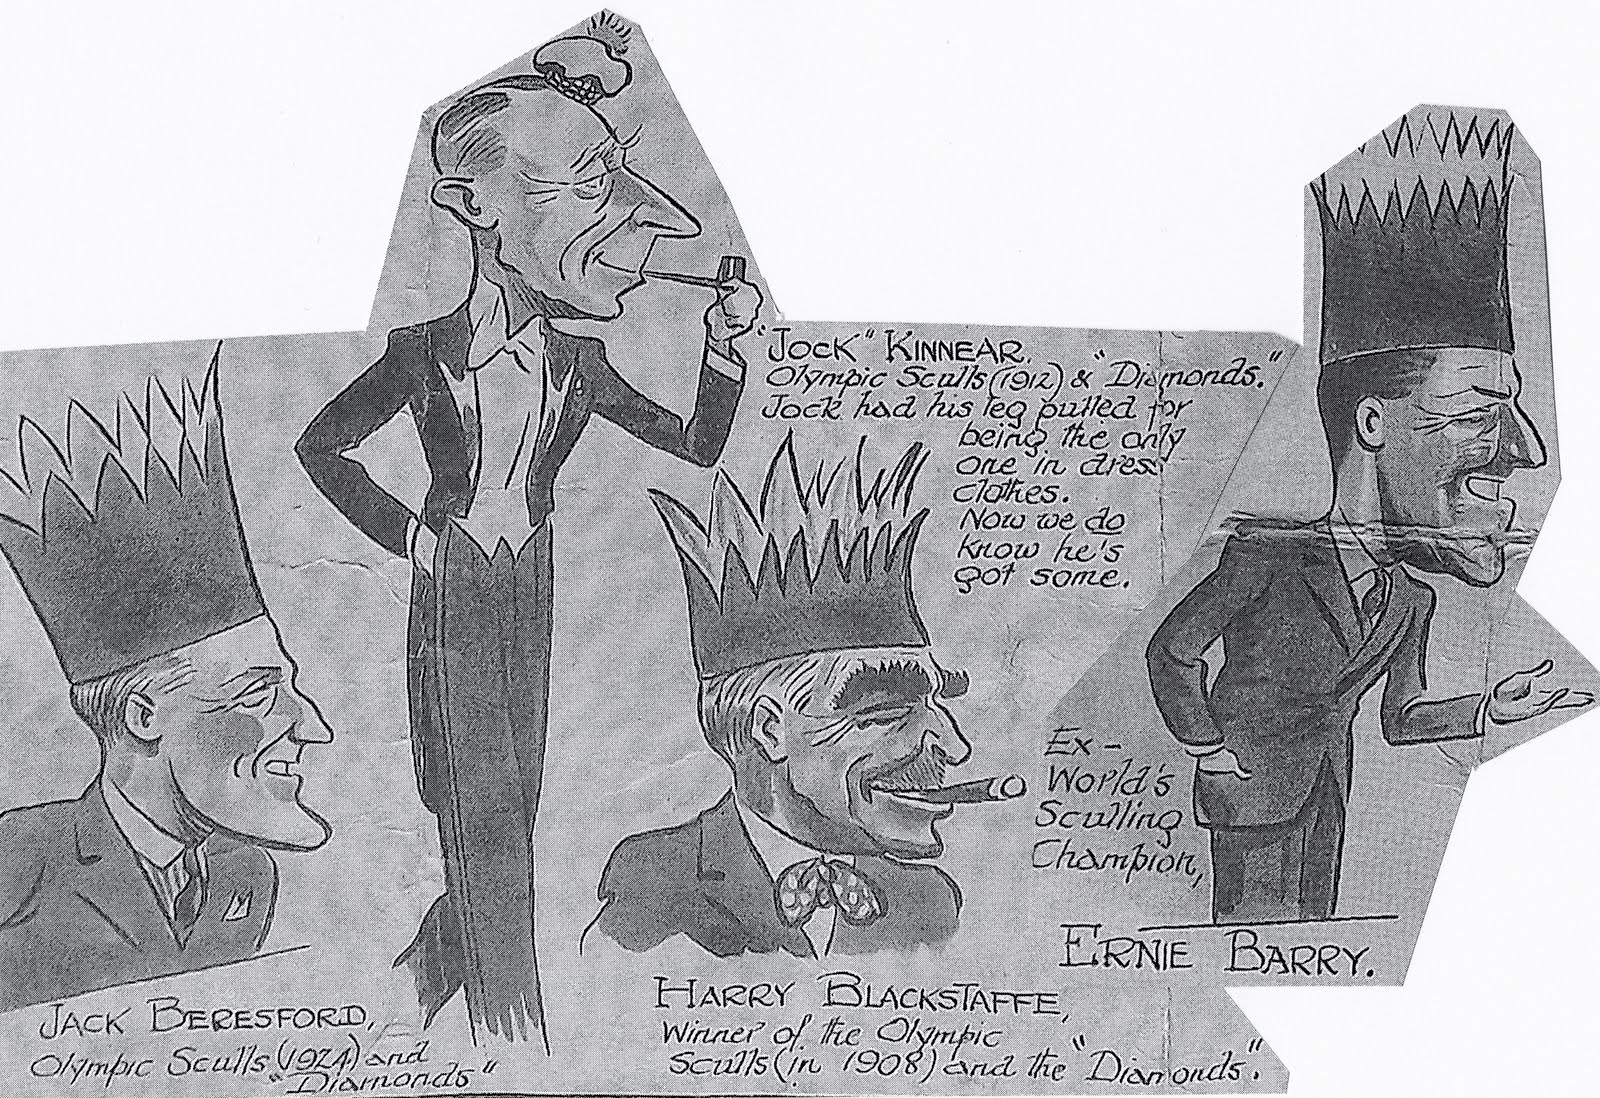 "JOCK" KINNEAR.
Olympic Sculls (1912) & "Diamonds."
Jock had his leg pulled for
being the only
one in dress
clothes.
Now we do
know he's
got some.
Ex-
World's
Sculling
Champion,
ERNIE BARRY.
JACK BERESFORD,
Olympic Sculls (1924) and
"Diamonds"
HARRY BLACKSTAFFE,
Winner of the Olympic
Sculls (in 1908) and the "Diamonds".